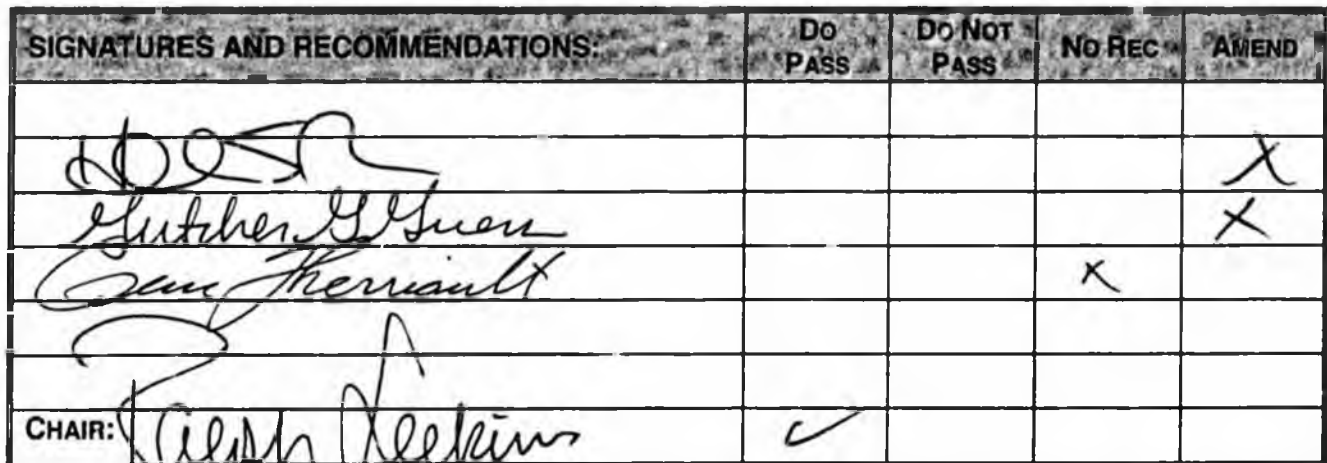 SIGNATURES AND RECOMMENDATIONS: DO PASS DO NOT PASS NO REC AMEND
X
Gretchen G Guess X
Gene Therriault X
CHAIR: Ralph Seekins ✓